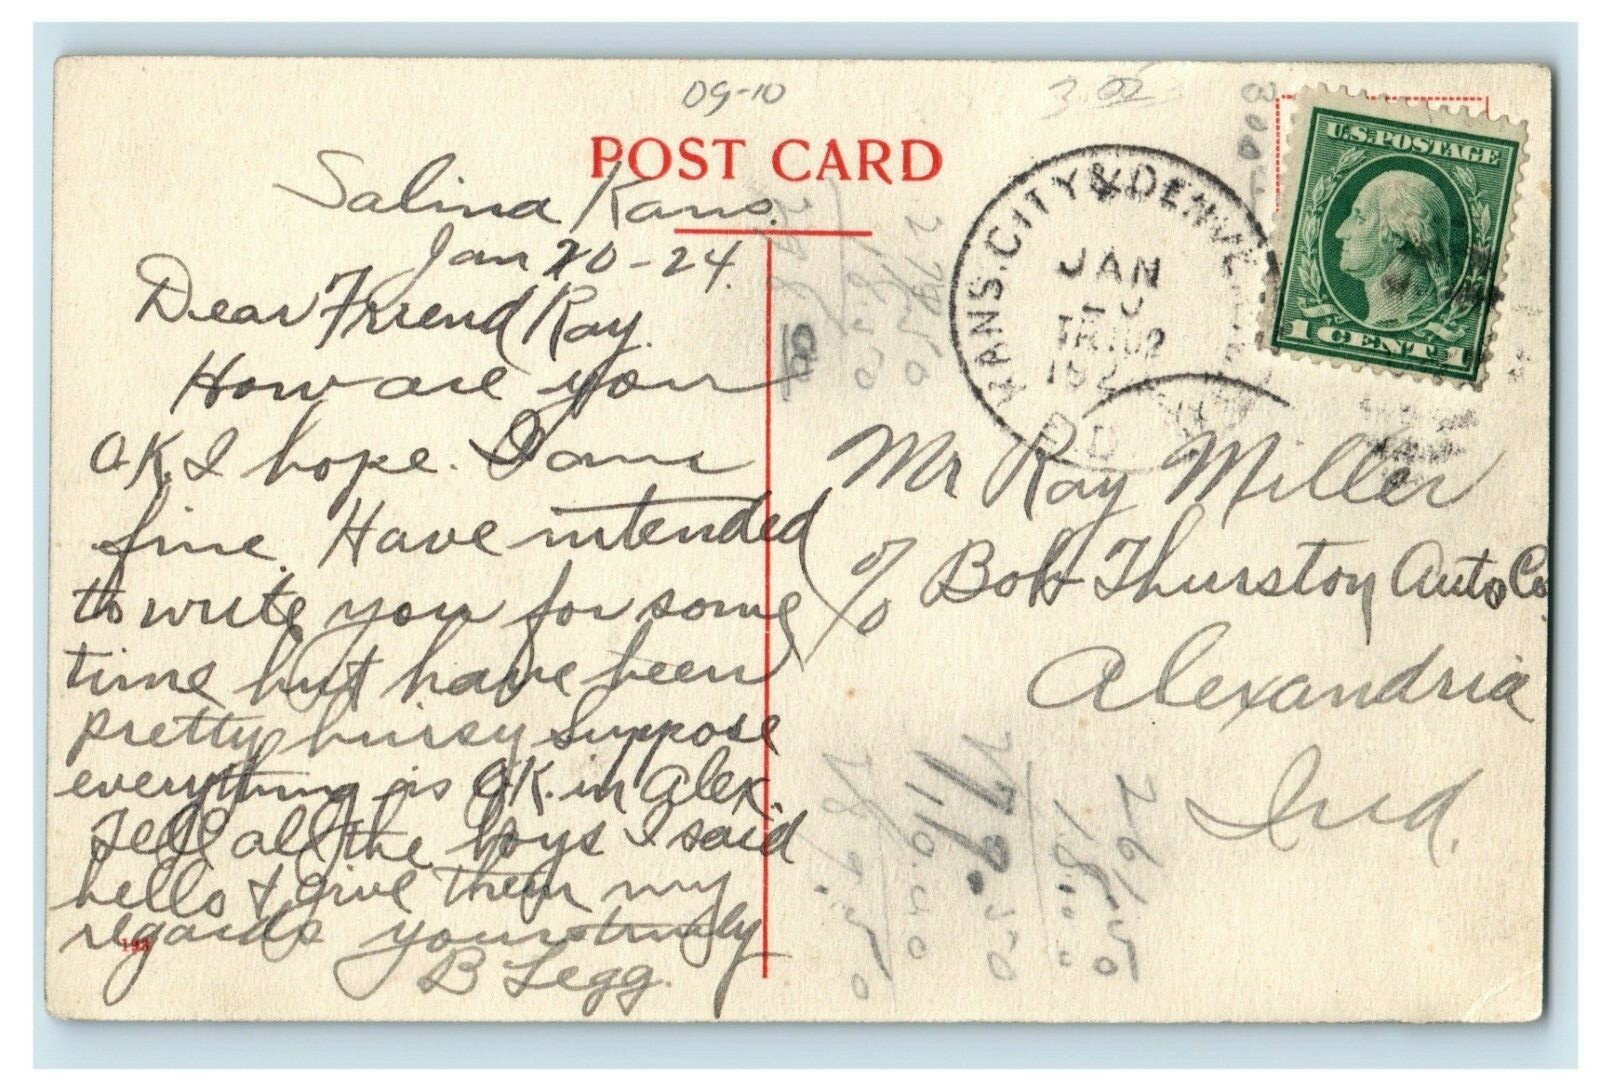 09-10
3 00
POST CARD
Salina Kans.
Jan 20-24.
Dear Friend Ray.
How are you
O.K. I hope. I am
fine. Have intended
to write you for some
time but have been
pretty buisy Suppose
everything is O.K. in Alex.
Tell all the boys I said
hello & give them my
regards yours truly
B Legg.
193
KANS. CITY & DENVE
JAN
20
TR 102
192
U.S. POSTAGE
1 CENT 1
Mr Ray Miller
% Bob Thurston Auto Co.
Alexandria
Ind.